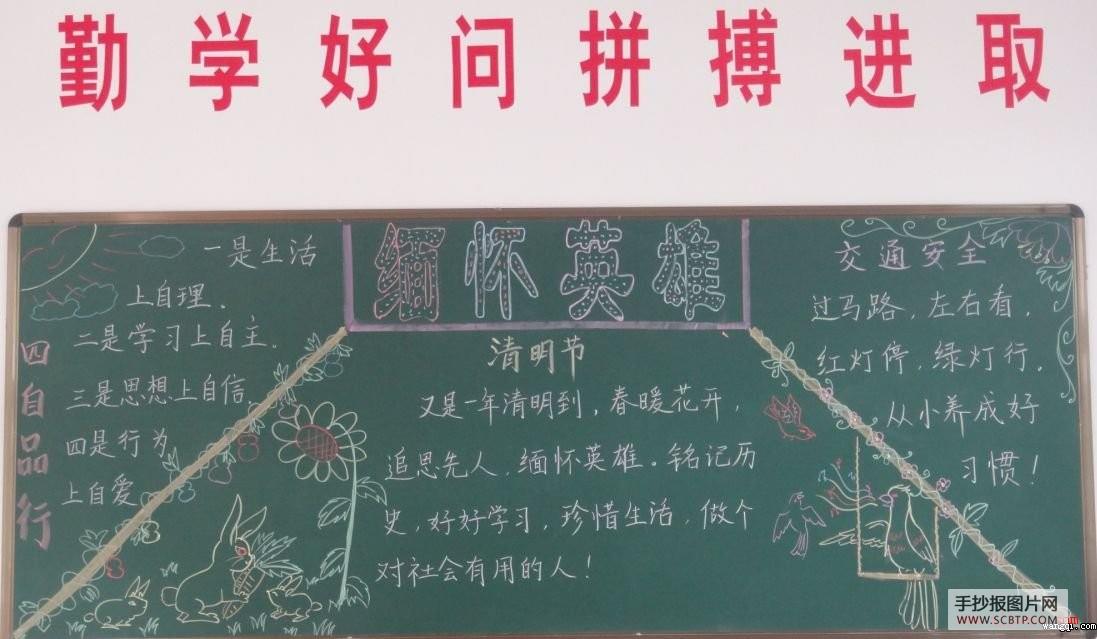 勤学好问拼搏进取
缅怀英雄
四自品行
一是生活
上自理.
二是学习上自主.
三是思想上自信.
四是行为
上自爱
清明节
又是一年清明到，春暖花开，
追思先人，缅怀英雄。铭记历
史，好好学习，珍惜生活，做个
对社会有用的人！
交通安全
过马路，左右看，
红灯停，绿灯行.
从小养成好
习惯！
手抄报图片网
WWW.SCBTP.COM
wangqi.com